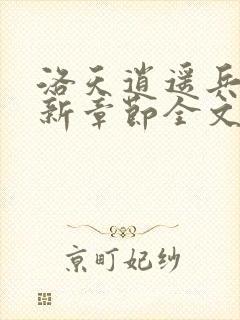 洛天逍遥兵
新章节全文
京町妃纱